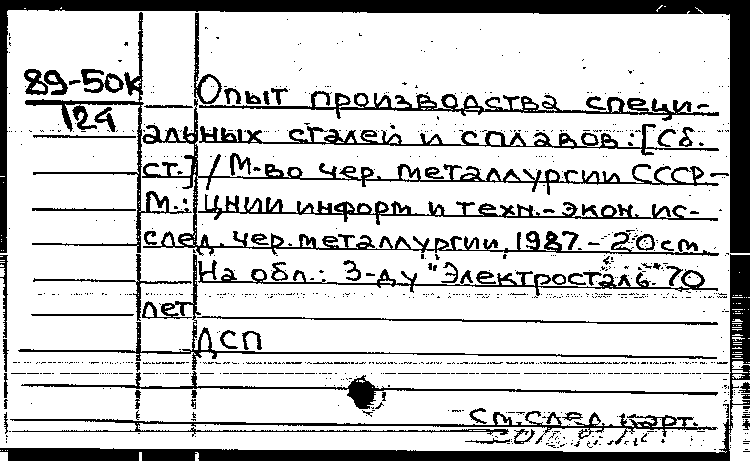 89-50К
124
Опыт производства специ-
альных сталей и сплавов: [Сб.
ст.] / М-во чер. металлургии СССР -
М.: ЦНИИ информ. и техн.-экон. ис-
след. чер. металлургии, 1987. - 20 см.
На обл.: З-ду "Электросталь" 70
лет.
ДСП
См. след. карт.